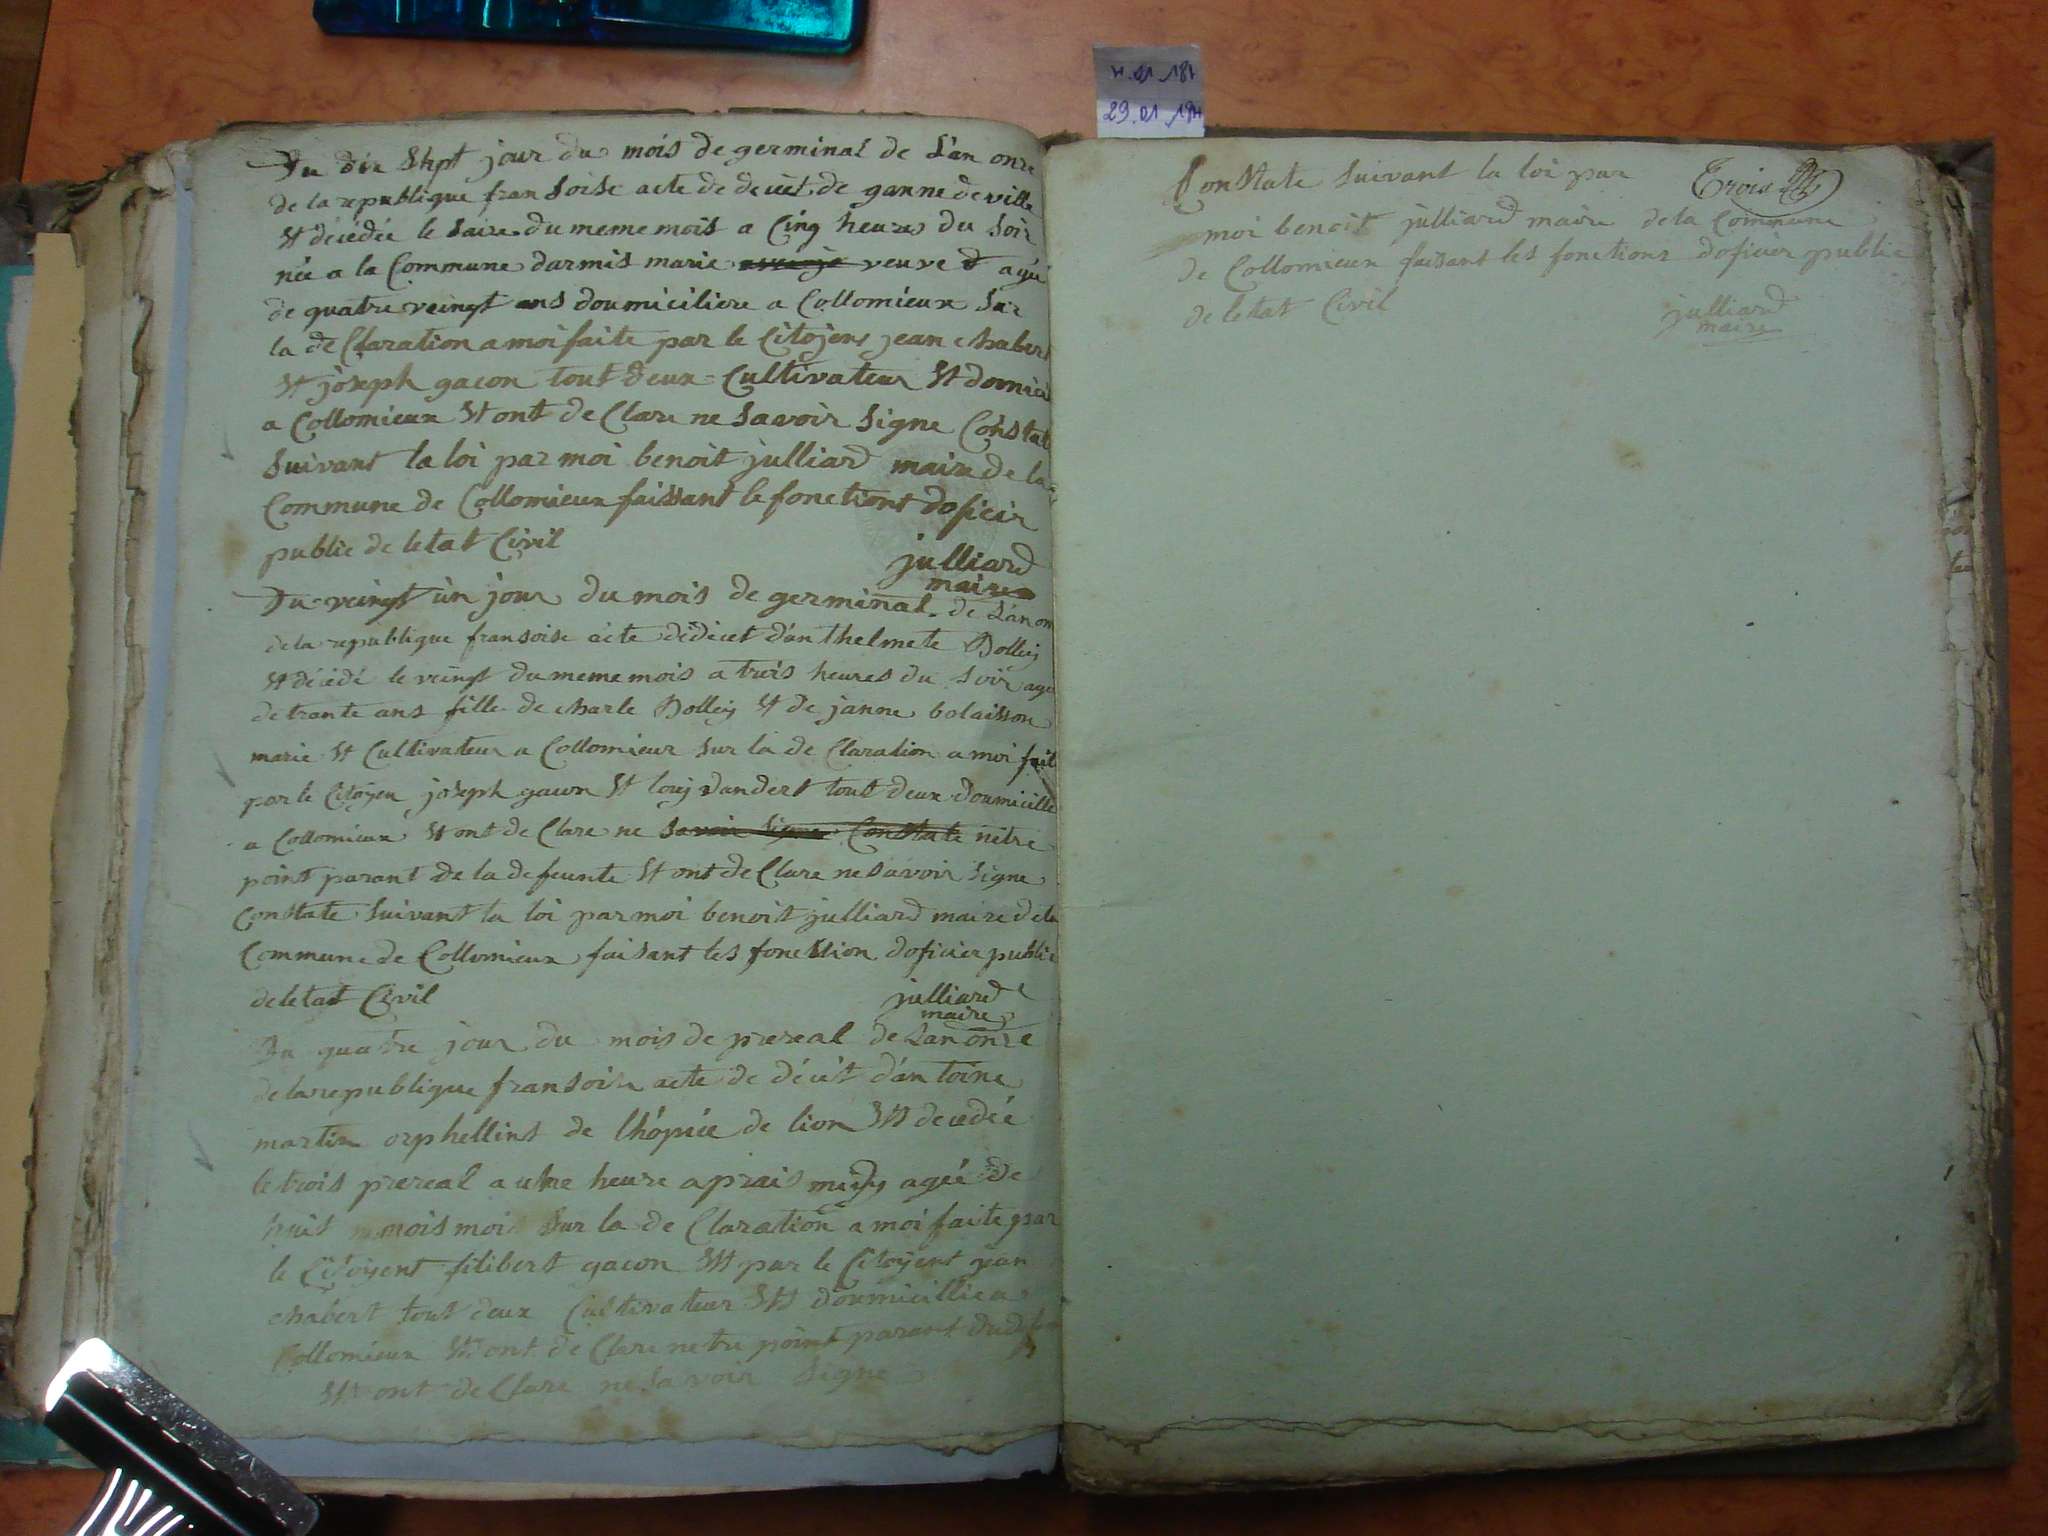 Du dix Sept jour du mois de germinal de L'an onze
de la republique fransoise acte de decet de ganne deville
St décédée le Saize du meme mois a Cinq heures du Soir
née a la Commune darmis marie veuve agée
de quatre veingt ans doumiciliere a Collomieux Sur
la de Claration a moi faite par le Citojens jean chabert
St joseph gacon tout deux Cultivateur St domicil
a Collomieux St ont de Clare ne Savoir Signe Constate
Suivant la loi par moi benoit julliard maire de la
Commune de Collomieux faissant le fonctions doficir
public de letat Civil
julliard
maire
Du veingt un jour du mois de germinal de L'an on
de la republique fransoise acte dedecet d'anthelmete Bolley
St décédé le veingt du meme mois a trois heures du Soir age
de trante ans fille de charle Bolley St de janne bolaisson
marie St Cultivateur a Collomieux Sur la de Claration a moi fait
par le Citoyen joseph gacon St louj vandert tout deux doumicille
a Collomieux St ont de Clare ne Savoir Signe Constate nètre
point parant de la defeunte St ont de Clare ne Savoir Signe
Constate Suivant la loi par moi benoit julliard maire dela
Commune de Collomieux faisant les fonction doficier public
de letat Civil
julliard
maire
Du quatre jour du mois de prereal de Lan onze
de la republique fransoise acte de décét d'antoine
martin orphellins de lhópiée de lion St decedée
le trois prereal a une heure aprais midy agée de
huit mois moi Sur la de Claration a moi faite par
le Citoyent filibert gacon St par le Citoyent jean
chabert tout deux Cultivateur St doumicillie a
Collomieux St ont de Clare netre point parant du
St ont de Clare ne Savoir Signe
4.01.181
29.01.191
Constate Suivant la loi par Trois
moi benoit julliard maire de la Commune
de Collomieux faisant les fonctions doficier public
de letat Civil
julliard
maire